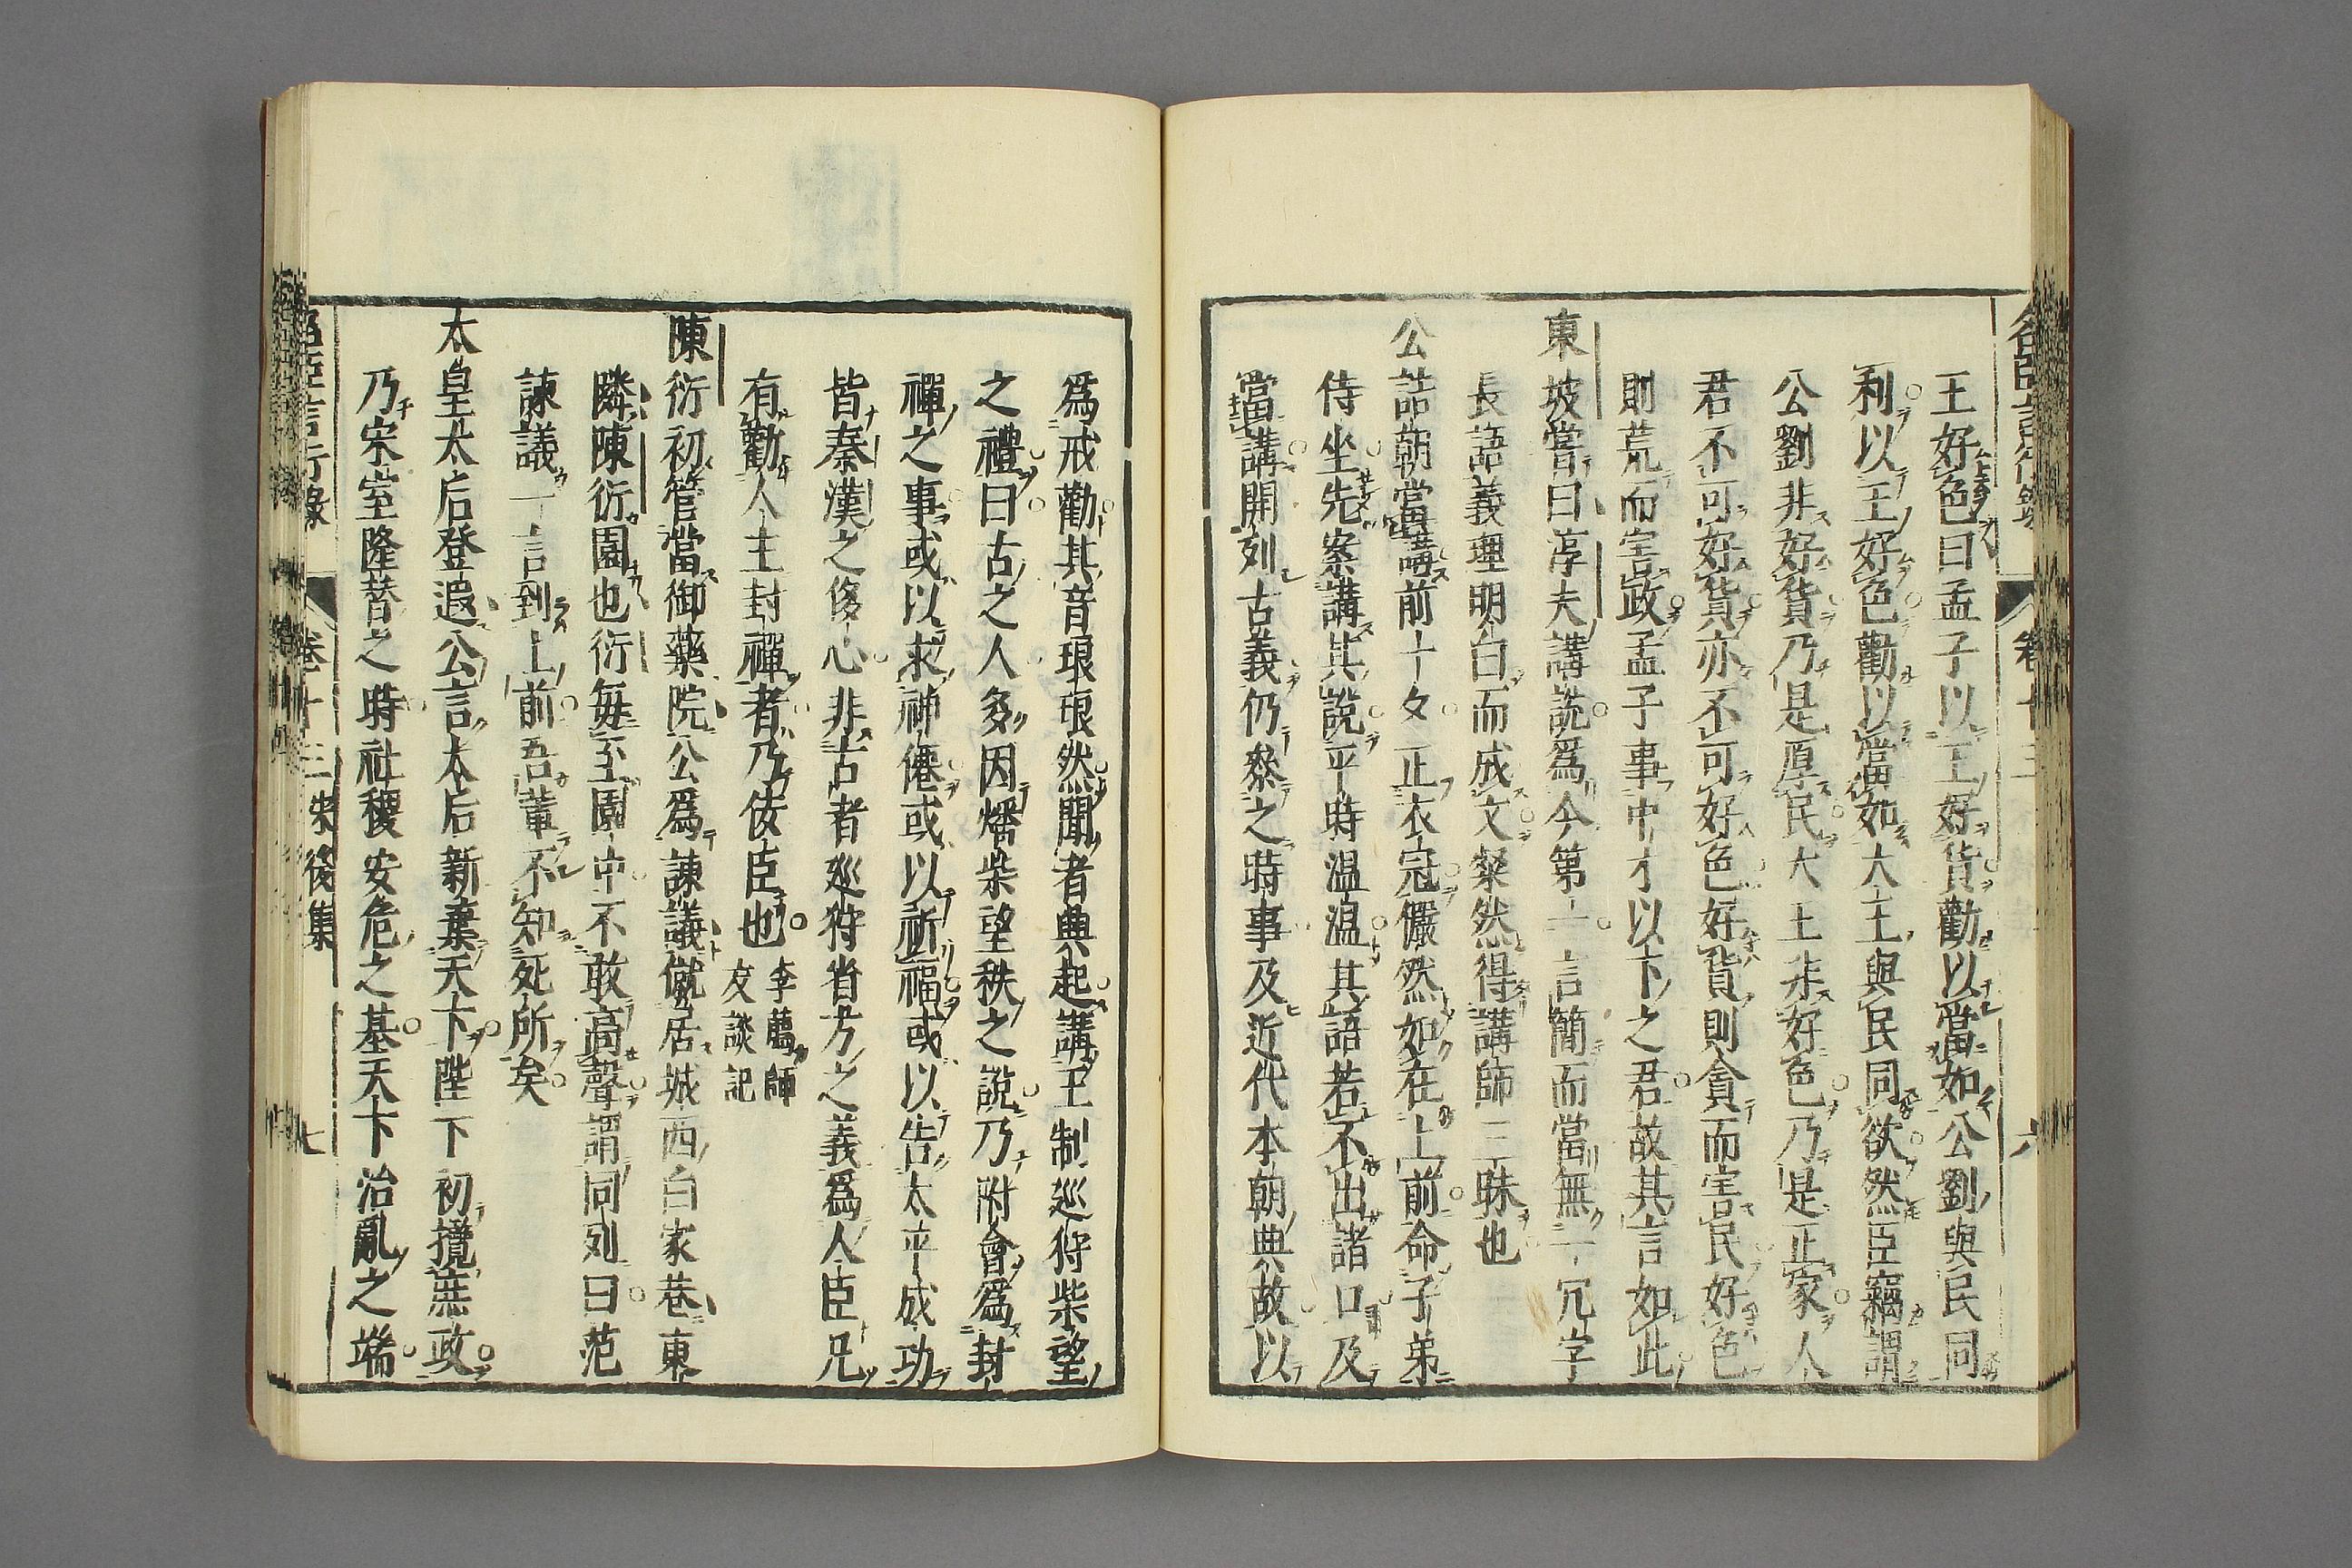 王好色曰孟子以王好貨勸以當如公劉與民同
利以王好色勸以當如大王與民同欲然臣竊謂
公劉非好貨乃是厚民大王非好色乃是正家人
君不可好貨亦不可好色好貨則貪而害民好色
則荒而害政孟子事中才以下之君故其言如此
東坡嘗曰淳夫講說爲今第一言簡而當無一冗字
長語義理明白而成文粲然得講師三昧也
公誥朝當講前一夕正衣冠儼然如在上前命子弟
侍坐先案講其說平時温温其語若不出諸口及
當講開列古義仍參之時事及近代本朝典故以
爲戒勸其音琅琅然聞者興起講王制巡狩柴望
之禮曰古之人多因燔柴望秩之說乃附會爲封
禪之事或以求神僊或以祈福或以告太平成功
皆秦漢之侈心非古者巡狩省方之義爲人臣凡
有勸人主封禪者乃佞臣也李廌師友談記
陳衍初管當御藥院公爲諫議僦居城西白家巷東
隣陳衍園也衍每至園中不敢高聲謂同列曰范
諫議一言到上前吾輩不知死所矣
太皇太后登遐公言太后新棄天下陛下初攬庶政
乃宋室隆替之時社稷安危之基天下治亂之端
卷十三 朱後集 七